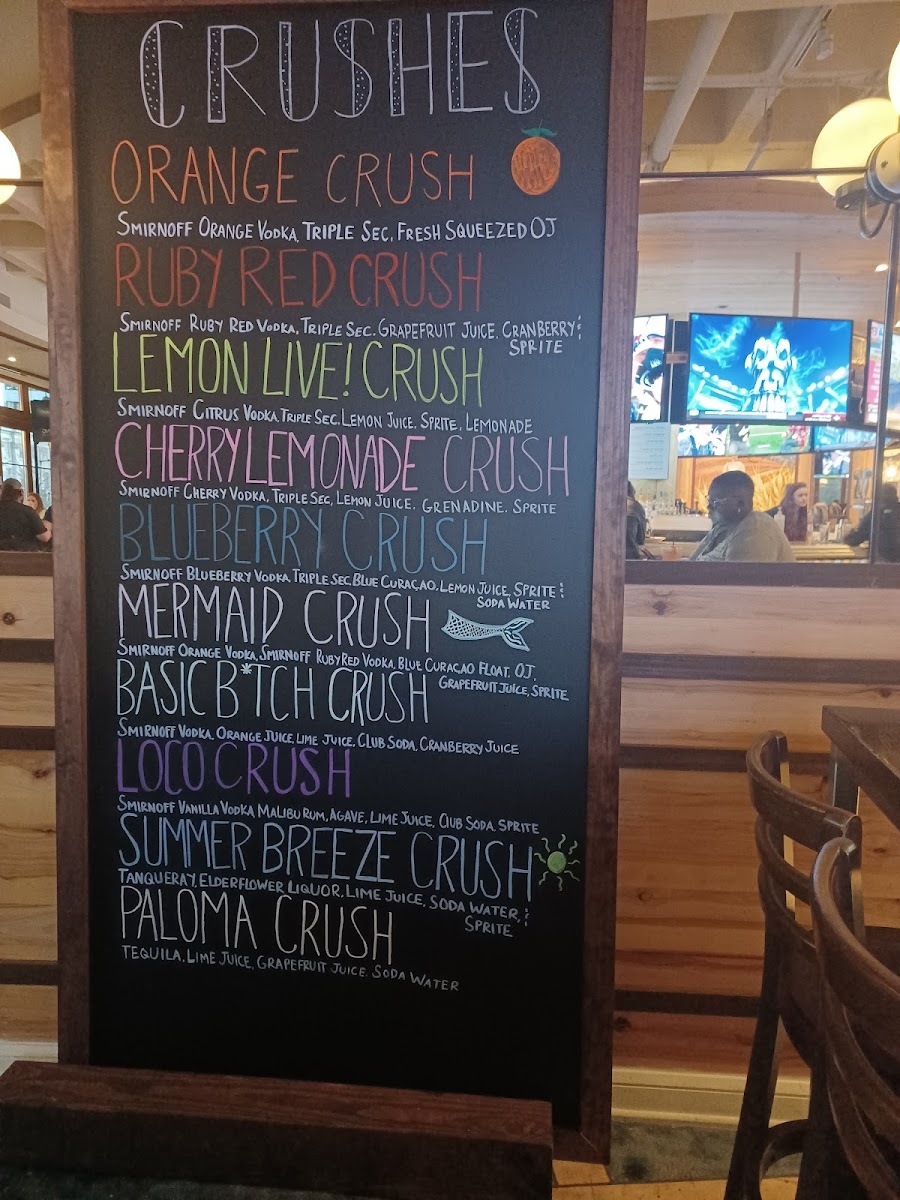 CRUSHES
ORANGE CRUSH
SMIRNOFF ORANGE VODKA, TRIPLE SEC, FRESH SQUEEZED OJ
RUBY RED CRUSH
SMIRNOFF RUBY RED VODKA, TRIPLE SEC. GRAPEFRUIT JUICE. CRANBERRY &
SPRITE
LEMON LIVE! CRUSH
SMIRNOFF CITRUS VODKA, TRIPLE SEC, LEMON JUICE. SPRITE, LEMONADE
CHERRY LEMONADE CRUSH
SMIRNOFF CHERRY VODKA, TRIPLE SEC, LEMON JUICE. GRENADINE. SPRITE
BLUEBERRY CRUSH
SMIRNOFF BLUEBERRY VODKA, TRIPLE SEC, BLUE CURAÇAO, LEMON JUICE, SPRITE &
SODA WATER
MERMAID CRUSH
SMIRNOFF ORANGE VODKA, SMIRNOFF RUBY RED VODKA, BLUE CURACAO FLOAT, OJ,
GRAPEFRUIT JUICE, SPRITE
BASIC B*TCH CRUSH
SMIRNOFF VODKA, ORANGE JUICE, LIME JUICE, CLUB SODA, CRANBERRY JUICE
LOCO CRUSH
SMIRNOFF VANILLA VODKA, MALIBU RUM, AGAVE, LIME JUICE, CLUB SODA, SPRITE
SUMMER BREEZE CRUSH
TANQUERAY, ELDERFLOWER LIQUOR, LIME JUICE, SODA WATER, &
SPRITE
PALOMA CRUSH
TEQUILA, LIME JUICE, GRAPEFRUIT JUICE. SODA WATER